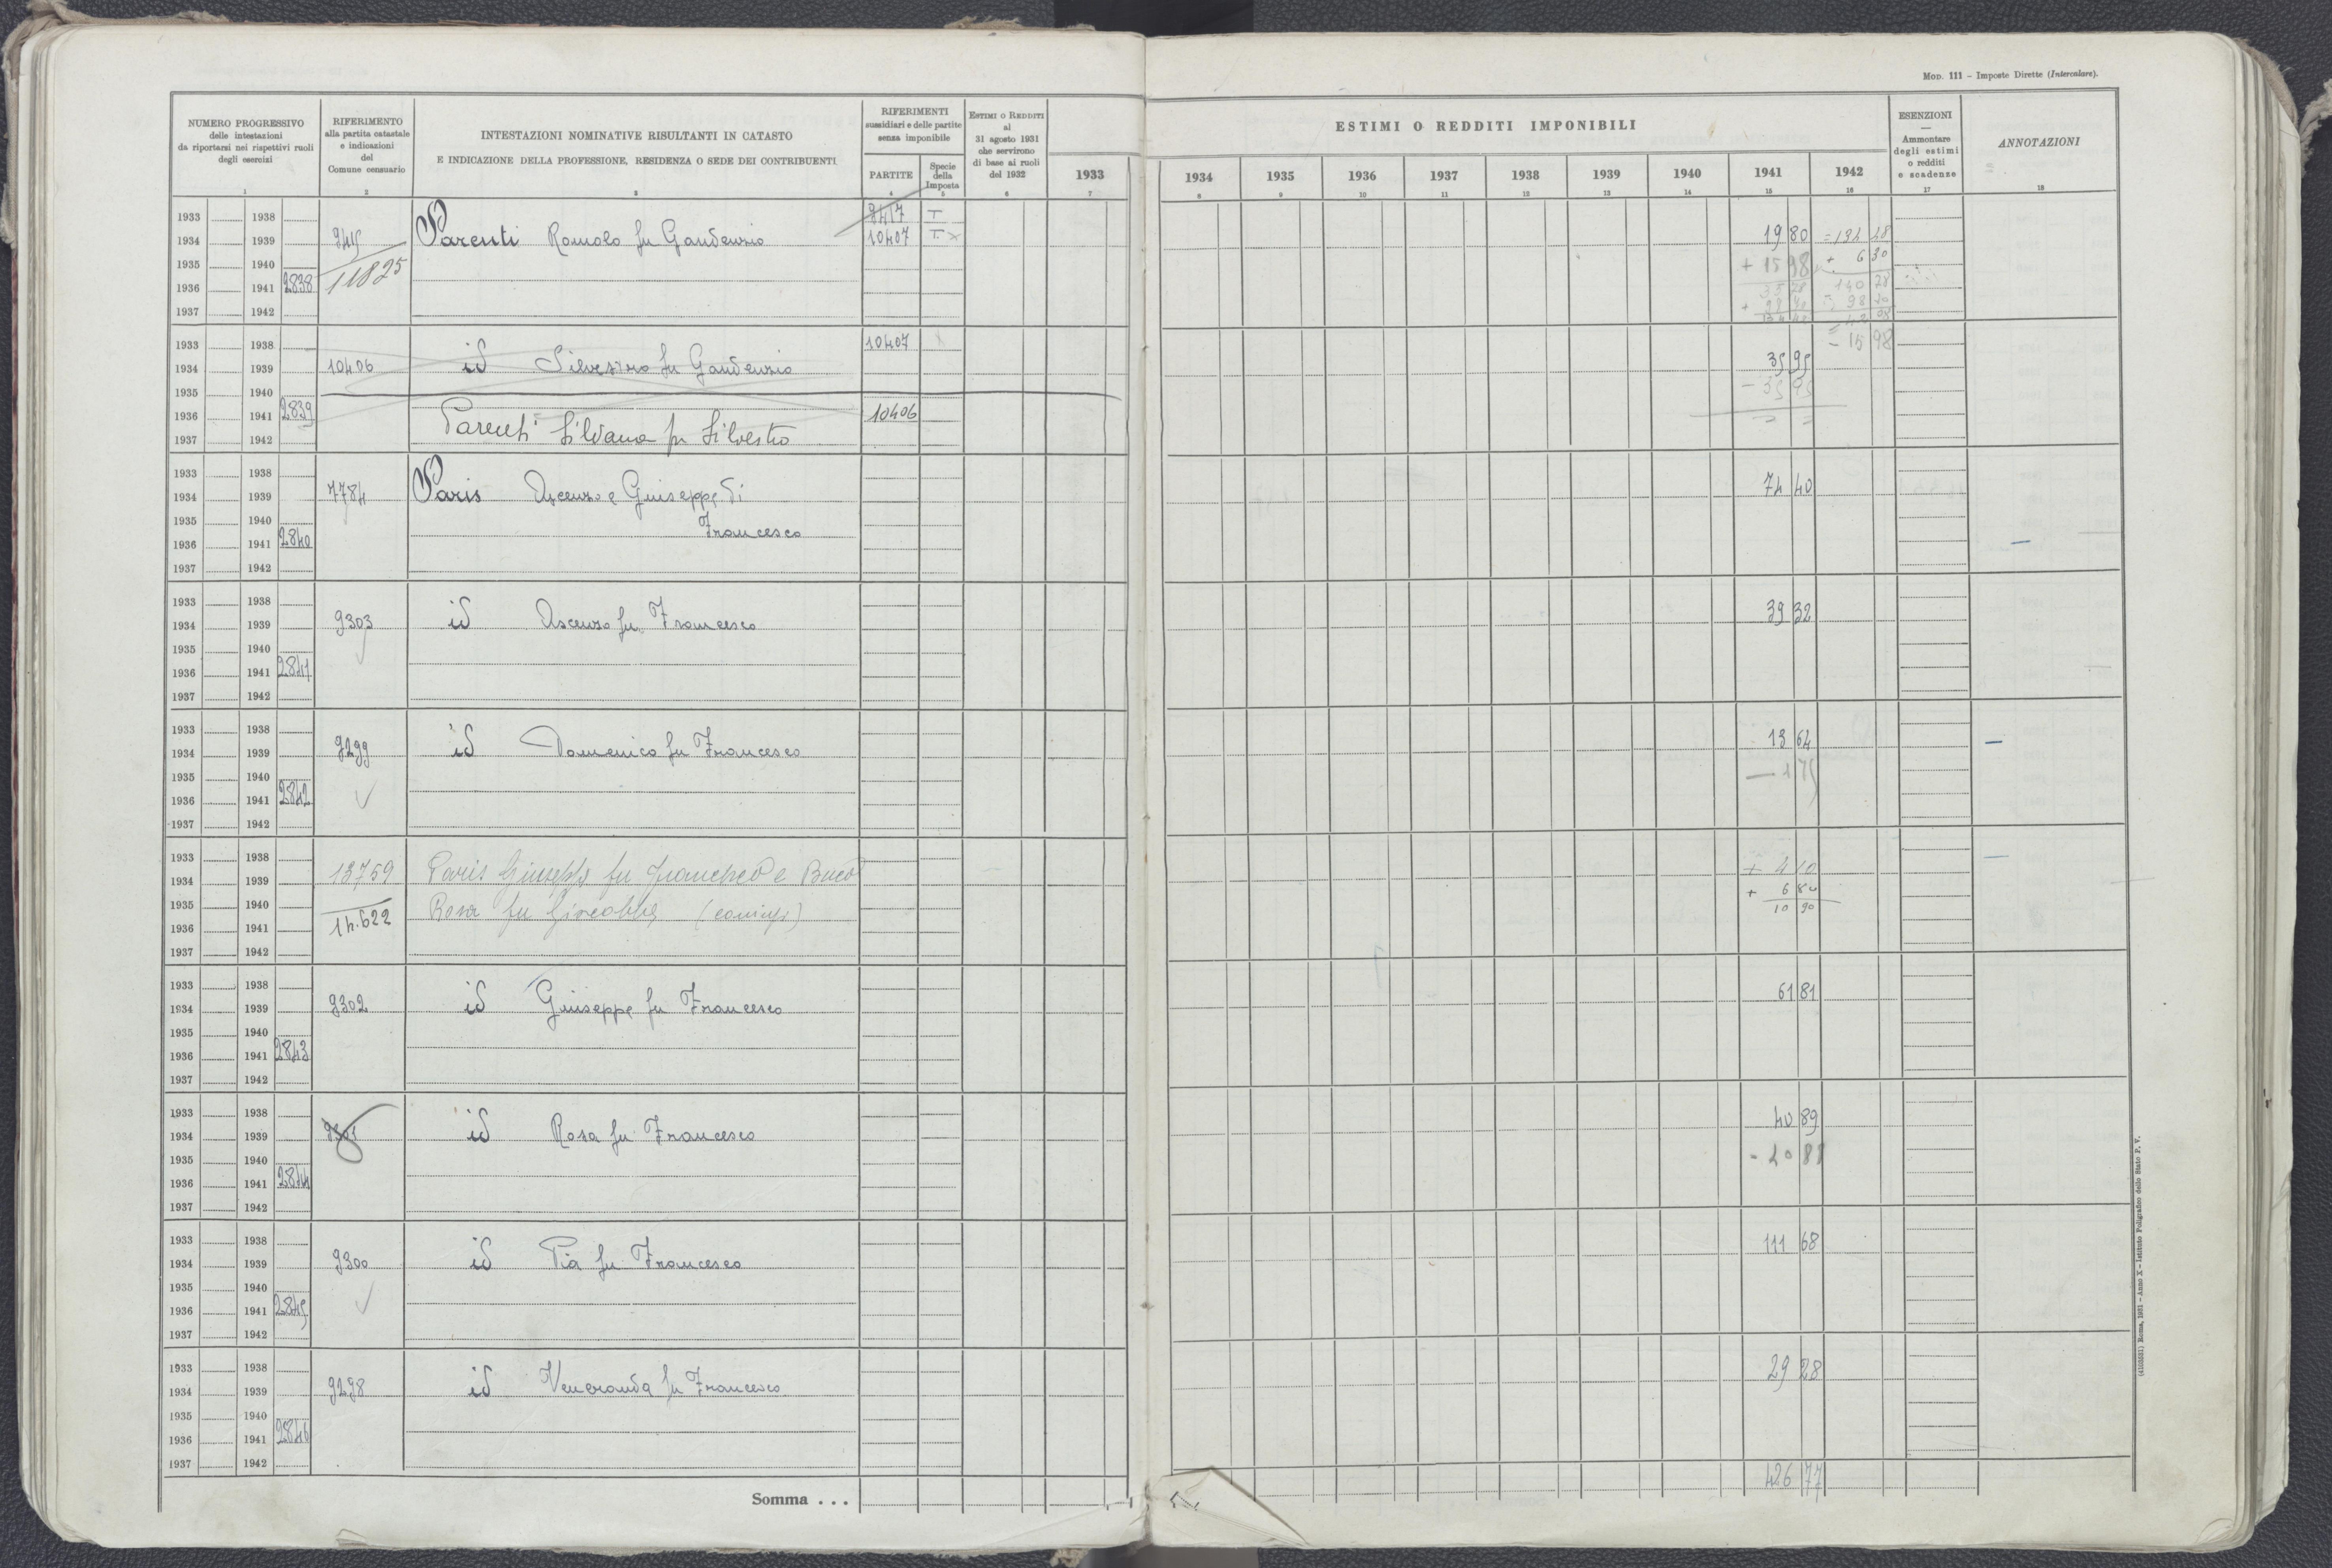 MOD. 111 – Imposte Dirette (Intercalare).
NUMERO PROGRESSIVO
delle intestazioni
da riportarsi nei rispettivi ruoli
degli esercizi
RIFERIMENTO
alla partita catastale
e indicazioni
del
Comune censuario
INTESTAZIONI NOMINATIVE RISULTANTI IN CATASTO
E INDICAZIONE DELLA PROFESSIONE, RESIDENZA O SEDE DEI CONTRIBUENTI
RIFERIMENTI
sussidiari e delle partite
senza imponibile
PARTITE
Specie
della
Imposta
ESTIMI O REDDITI
al
31 agosto 1931
che servirono
di base ai ruoli
del 1932
ESTIMI O REDDITI IMPONIBILI
1933 1934 1935 1936 1937 1938 1939 1940 1941 1942
ESENZIONI
—
Ammontare
degli estimi
o redditi
e scadenze
ANNOTAZIONI
1 2 3 4 5 6 7 8 9 10 11 12 13 14 15 16 17 18
1933 1938 8417 T
1934 1939 Parenti Romolo fu Gaudenzio 10407 T x 19 80 = 134 28
1935 1940 11825 + 15 98 + 6 30
1936 1941 2838 140 28
1937 1942
1933 1938 10407 - 15 98
1934 1939 10406 id Silvestro fu Gaudenzio 35 95
1935 1940 - 35 95
1936 1941 2839 10406 = =
1937 1942 Parenti Silvana fu Silvestro
1933 1938
1934 1939 7784 Paris Ascenzo e Giuseppe di 74 40
1935 1940
1936 1941 2840 Francesco
1937 1942
1933 1938
1934 1939 9303 id Ascenzo fu Francesco 39 32
1935 1940
1936 1941 2841
1937 1942
1933 1938
1934 1939 9299 id Domenico fu Francesco 13 64
1935 1940 — 1 75
1936 1941 2842
1937 1942
1933 1938
1934 1939 13759 Paris Giuseppe fu Francesco e + 4 10
1935 1940 Rosa fu Giacobbe (coniugi) + 6 80
1936 1941 14.622 10 90
1937 1942
1933 1938
1934 1939 9302 id Giuseppe fu Francesco 61 81
1935 1940
1936 1941 2843
1937 1942
1933 1938
1934 1939 9301 id Rosa fu Francesco 40 89
1935 1940
1936 1941 2844
1937 1942
1933 1938
1934 1939 9300 id Pia fu Francesco 111 68
1935 1940
1936 1941 2845
1937 1942
1933 1938
1934 1939 9298 id Veneranda fu Francesco 29 28
1935 1940
1936 1941 2846
1937 1942
Somma . . . 426 77
Roma, 1931 – Anno X – Istituto Poligrafico dello Stato P. V.